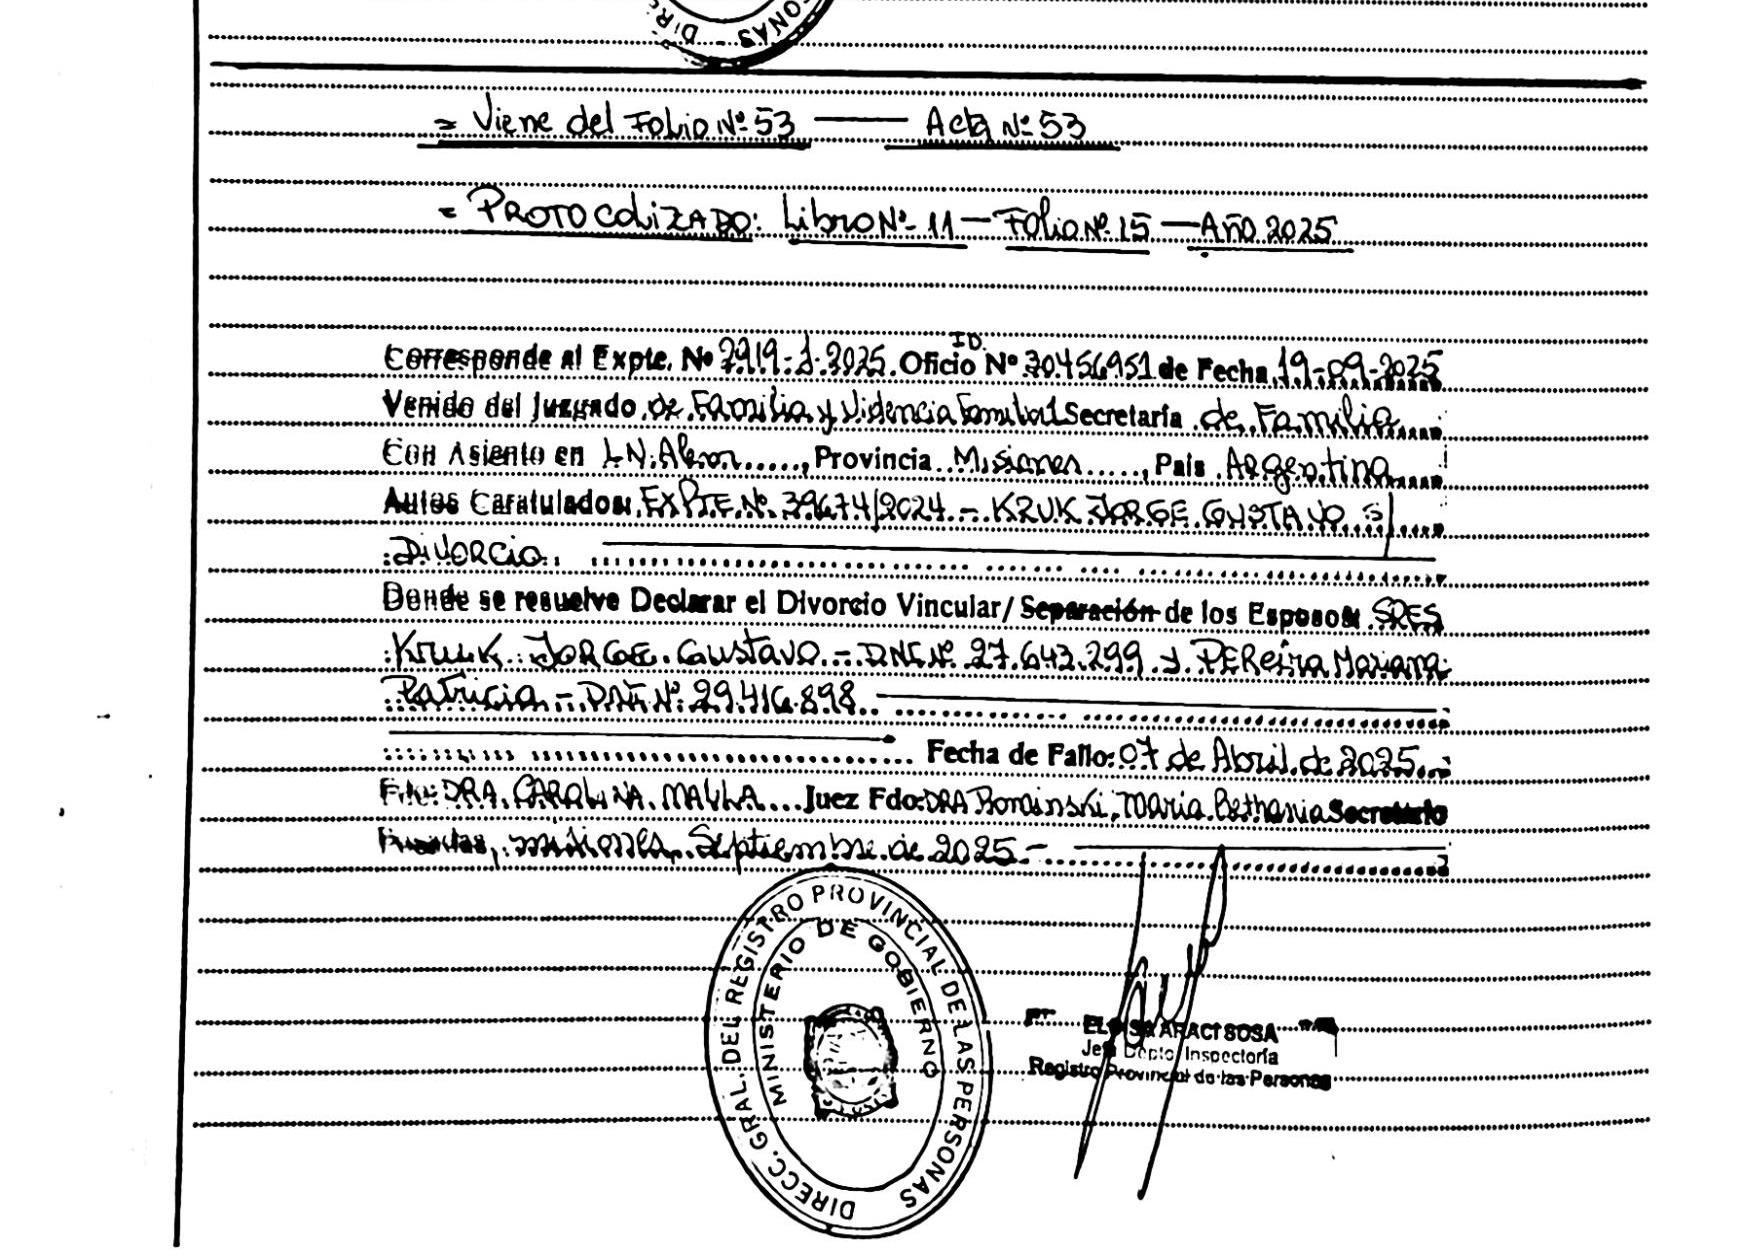 DIR NAS -
= Viene del Folio Nº 53 —— Acta Nº 53
= PROTOCOLIZADO: Libro Nº 11 — Folio Nº 15 — Año 2025
ID.
Corresponde al Expte. Nº 2919-J-2025. Oficio Nº 30456951 de Fecha 19-09-2025
Venido del Juzgado de Familia y Violencia Familiar Secretaría de Familia
Con Asiento en L.N. Alem....., Provincia Misiones....., País Argentina
Autos Caratulados: EXPTE. Nº. 39674/2024 - KRUK JORGE GUSTAVO S/
DIVORCIO.
Donde se resuelve Declarar el Divorcio Vincular/ Separación de los Esposos: SRES
KRUK JORGE Gustavo - DNI Nº 27.643.299 y PEREIRA Mariana
Patricia - DNI Nº 29.416.898
Fecha de Fallo: 07 de Abril de 2025.
Fdo: DRA. CAROLINA MALLA... Juez Fdo: DRA , Maria Bethania Secretario
Posadas, misiones, Septiembre de 2025 -
DIRECC. GRAL. DEL REGISTRO PROVINCIAL DE LAS PERSONAS
MINISTERIO DE GOBIERNO
ELOISA ARACI SOSA
Jefa Depto. Inspectoría
Registro Provincial de las Personas